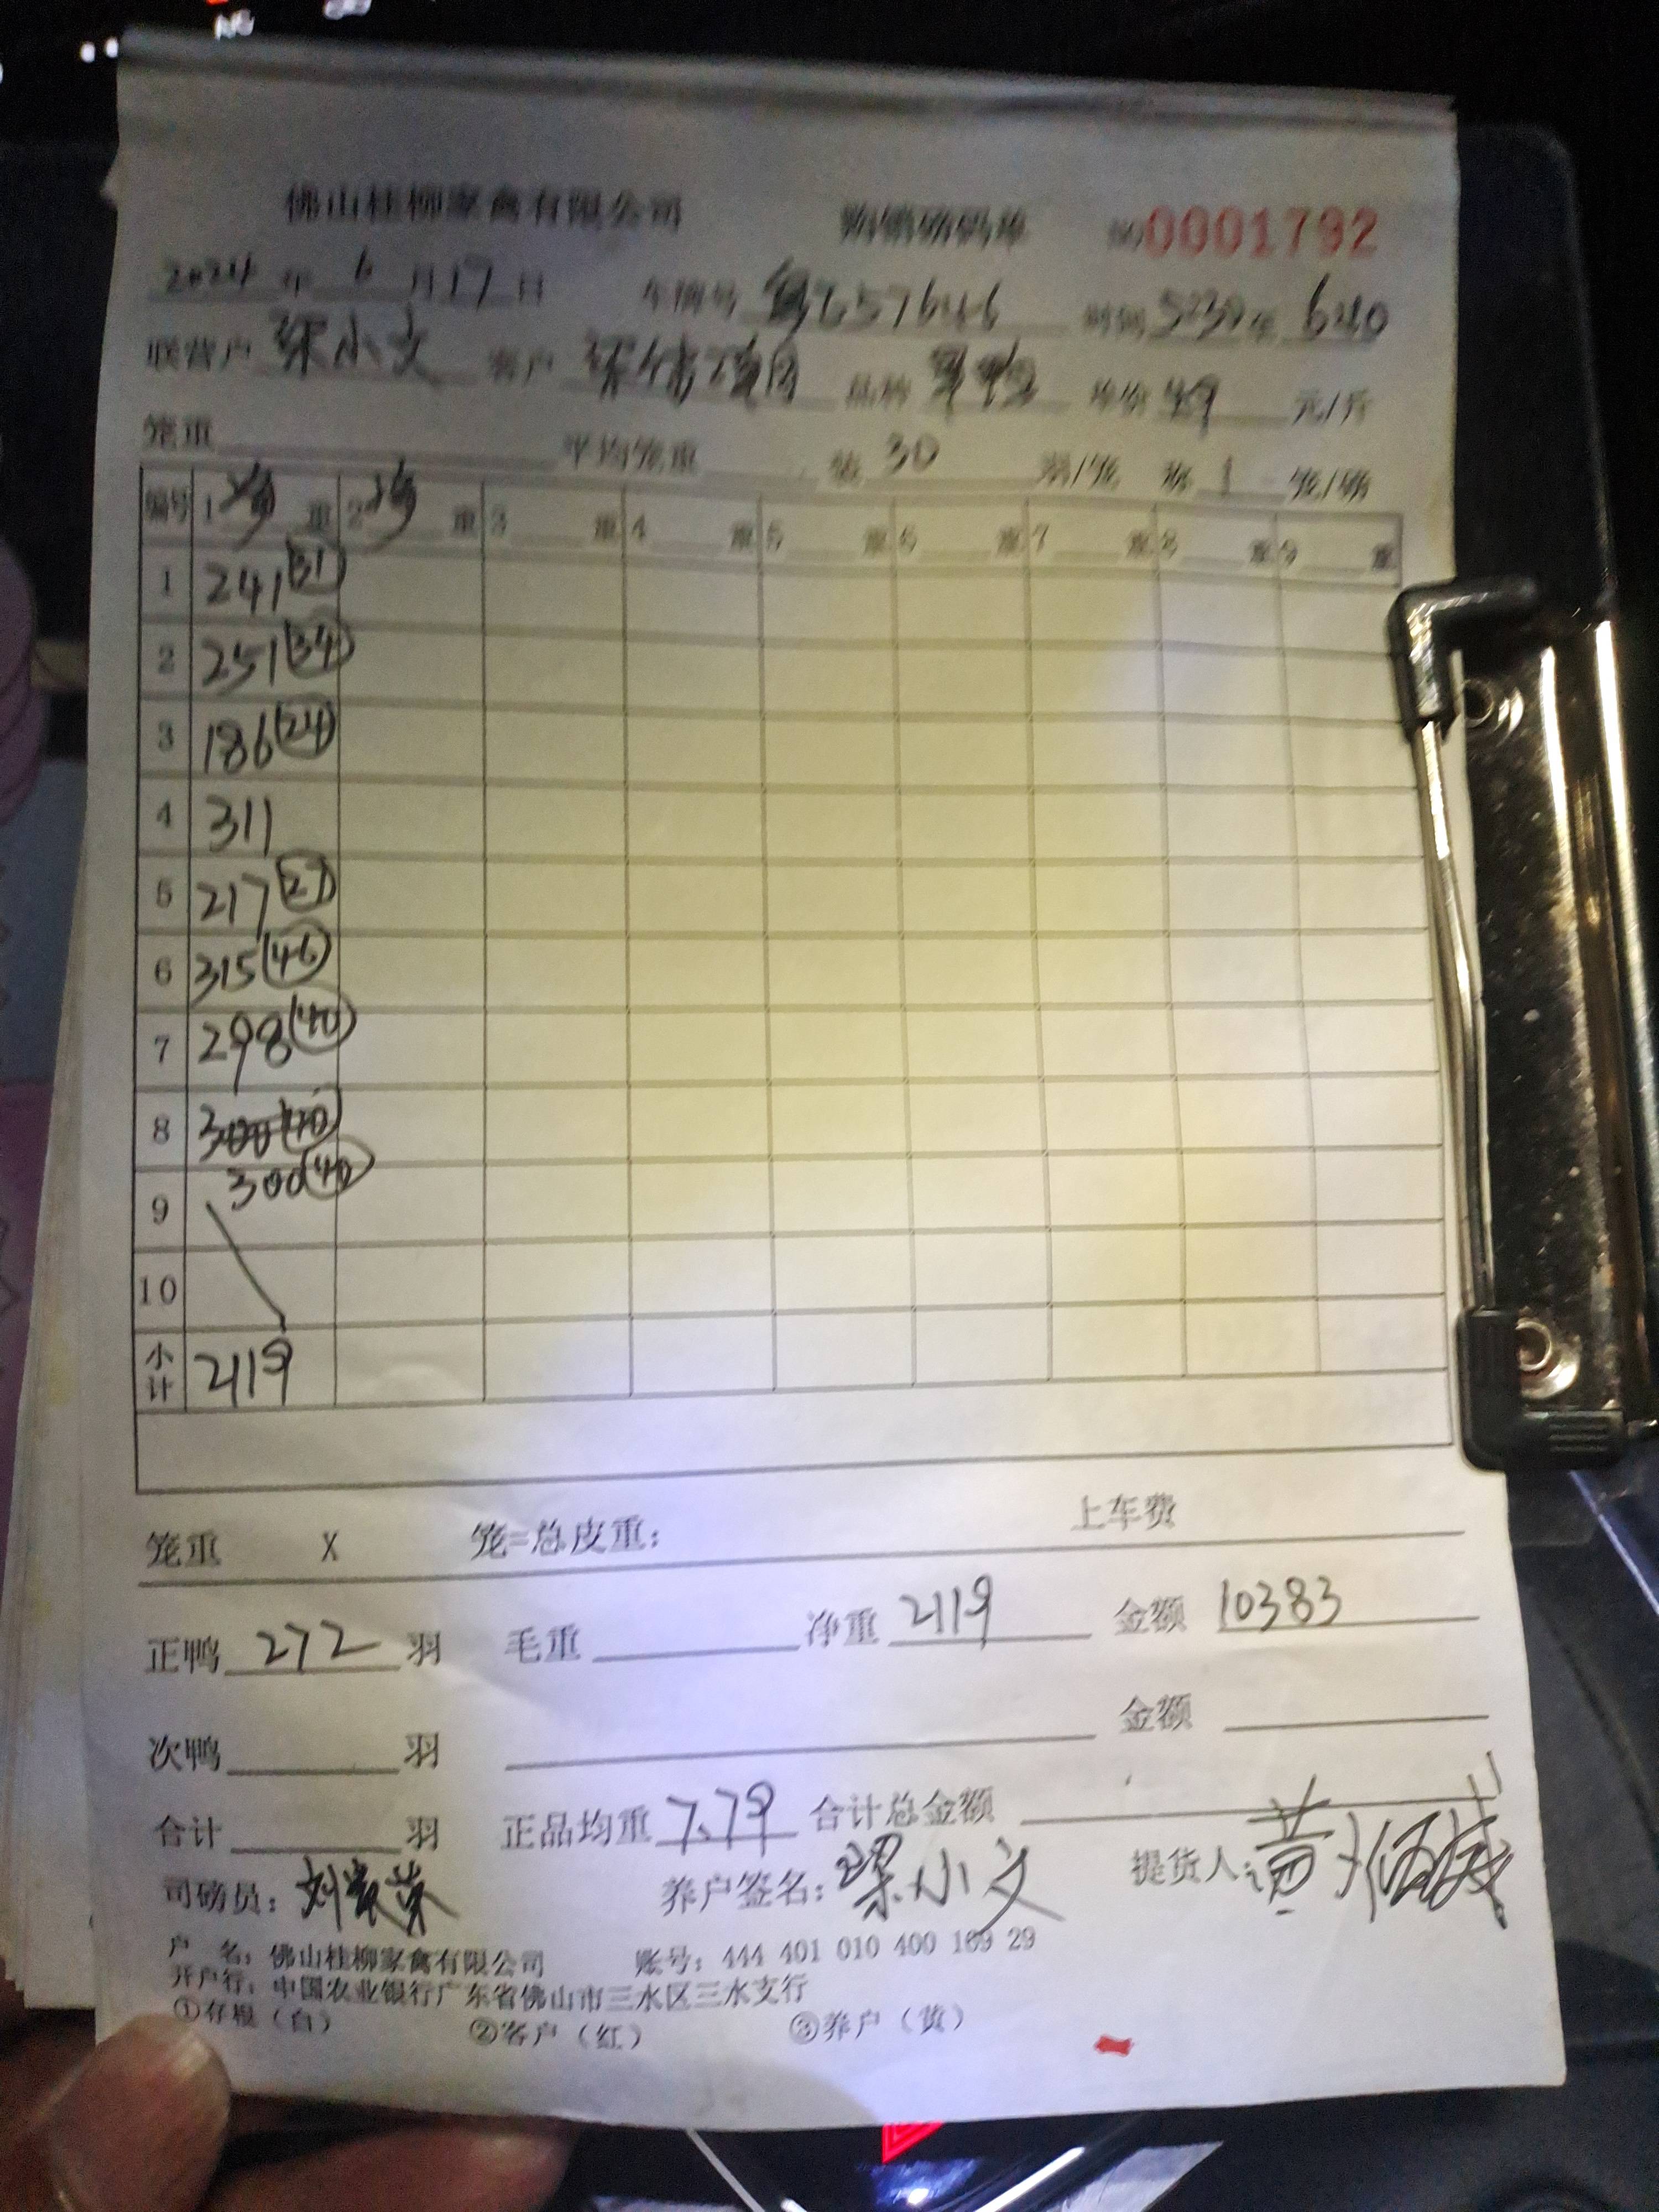 佛山桂柳家禽有限公司 购销磅码单 №0001792
2024年6月17日 车牌号 粤E57646 时间5:30至6:40
联营户 梁小文 客户 品种 单价 4.9 元/斤
笼重 平均笼重 装 30 羽/笼 称 1 笼/磅
编号 1 重 2 重 3 重 4 重 5 重 6 重 7 重 8 重 9 重
1 241 (31)
2 251 (34)
3 186 (24)
4 311
5 217 (27)
6 315 (46)
7 298 (40)
8 300 (40)
9 300 (40)
10
小计 2119
笼重 X 笼=总皮重： 上车费
正鸭 272 羽 毛重 净重 2119 金额 10383
次鸭 羽 金额
合计 羽 正品均重 7.79 合计总金额
司磅员： 养户签名：梁小文 提货人：
户 名：佛山桂柳家禽有限公司 账号：444 401 010 400 169 29
开户行：中国农业银行广东省佛山市三水区三水支行
①存根（白） ②客户（红） ③养户（黄）